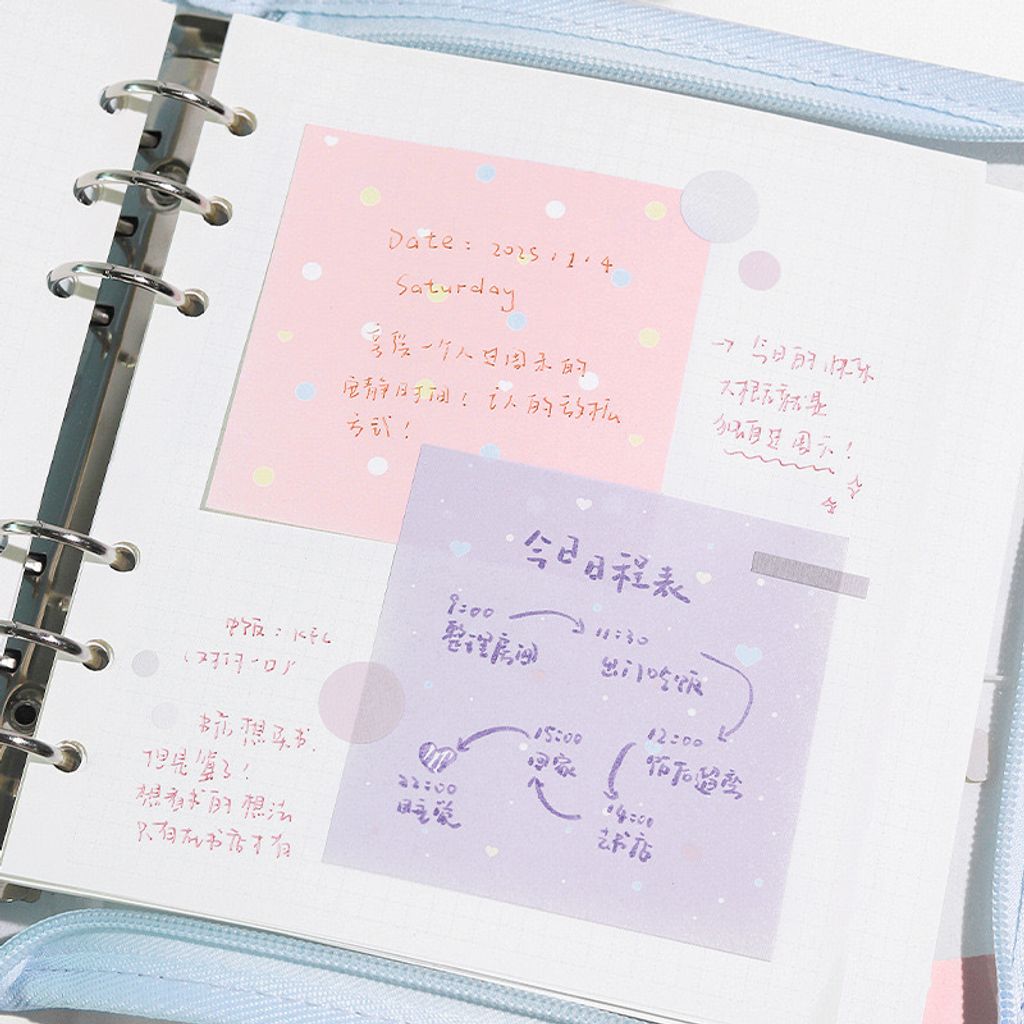 Date: 2025.1.4
Saturday
享受一个人过周末的
安静时间！
方式！
→ 今日的快乐
大概就是
独自过周末！
今日日程表
9:00
整理房间
11:30
出门吃饭
12:00
饭后留座
14:00
去书店
15:00
回家
22:00
睡觉
中饭：KFC
书店想买书，
但是算了！
想看书的想法
只有在书店才有